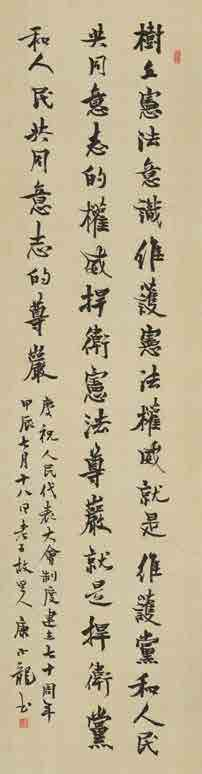 樹立憲法意識維護憲法權威就是維護黨和人民
共同意志的權威捍衛憲法尊嚴就是捍衛黨
和人民共同意志的尊嚴
慶祝人民代表大會制度建立七十周年
甲辰七月十八日老子故里人康小龍書